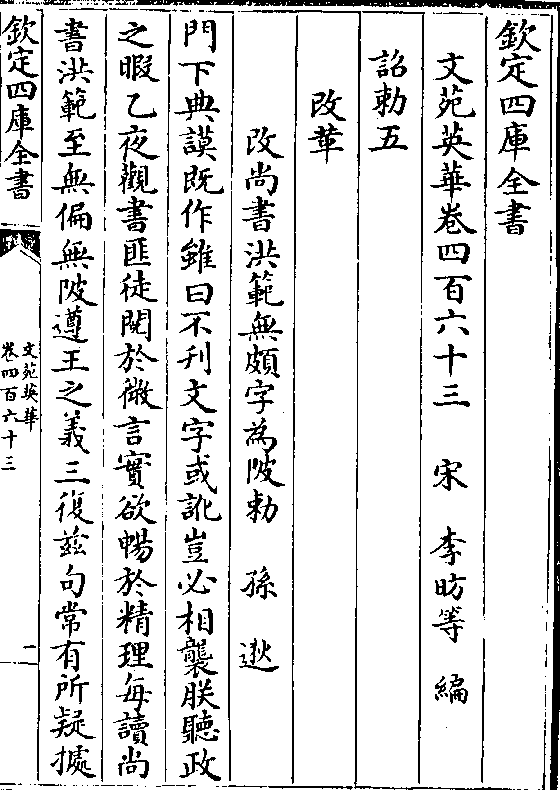 欽定四庫全書
文苑英華卷四百六十三 宋 李昉等 編
詔勅五
改革
改尚書洪範無頗字為陂勅 孫逖
門下典謨既作雖曰不刋文字或訛豈必相襲朕聽政
之暇乙夜觀書匪徒閲於微言實欲暢於精理每讀尚
書洪範至無偏無陂遵王之義三復兹句常有所疑據
欽定四庫全書
文苑英華
卷四百六十三
一